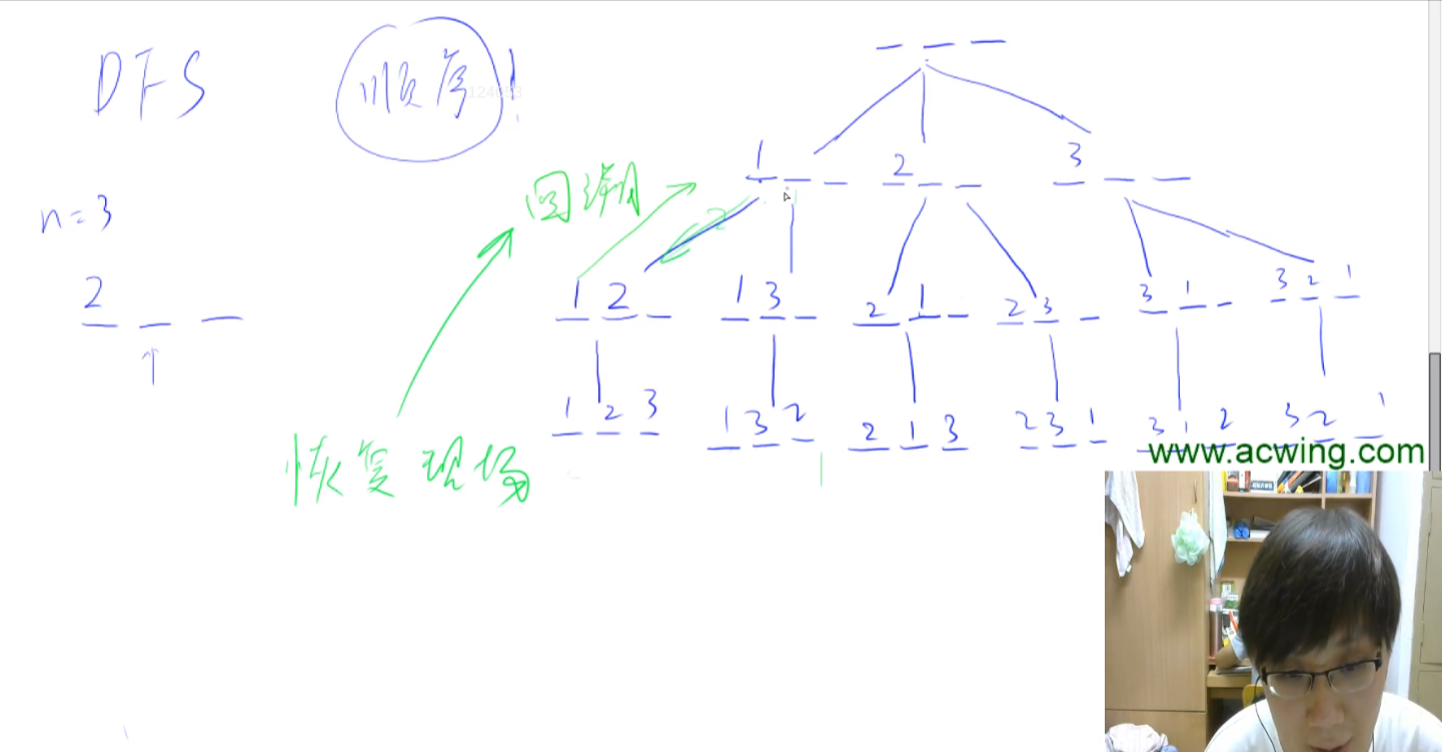 DFS
顺序!
n=3
2
回溯
恢复现场
1
2
3
1 2
1 3
2 1
2 3
3 1
3 2 1
1 2 3
1 3 2
2 1 3
2 3 1
3 1 2
3 2 1
2
www.acwing.com